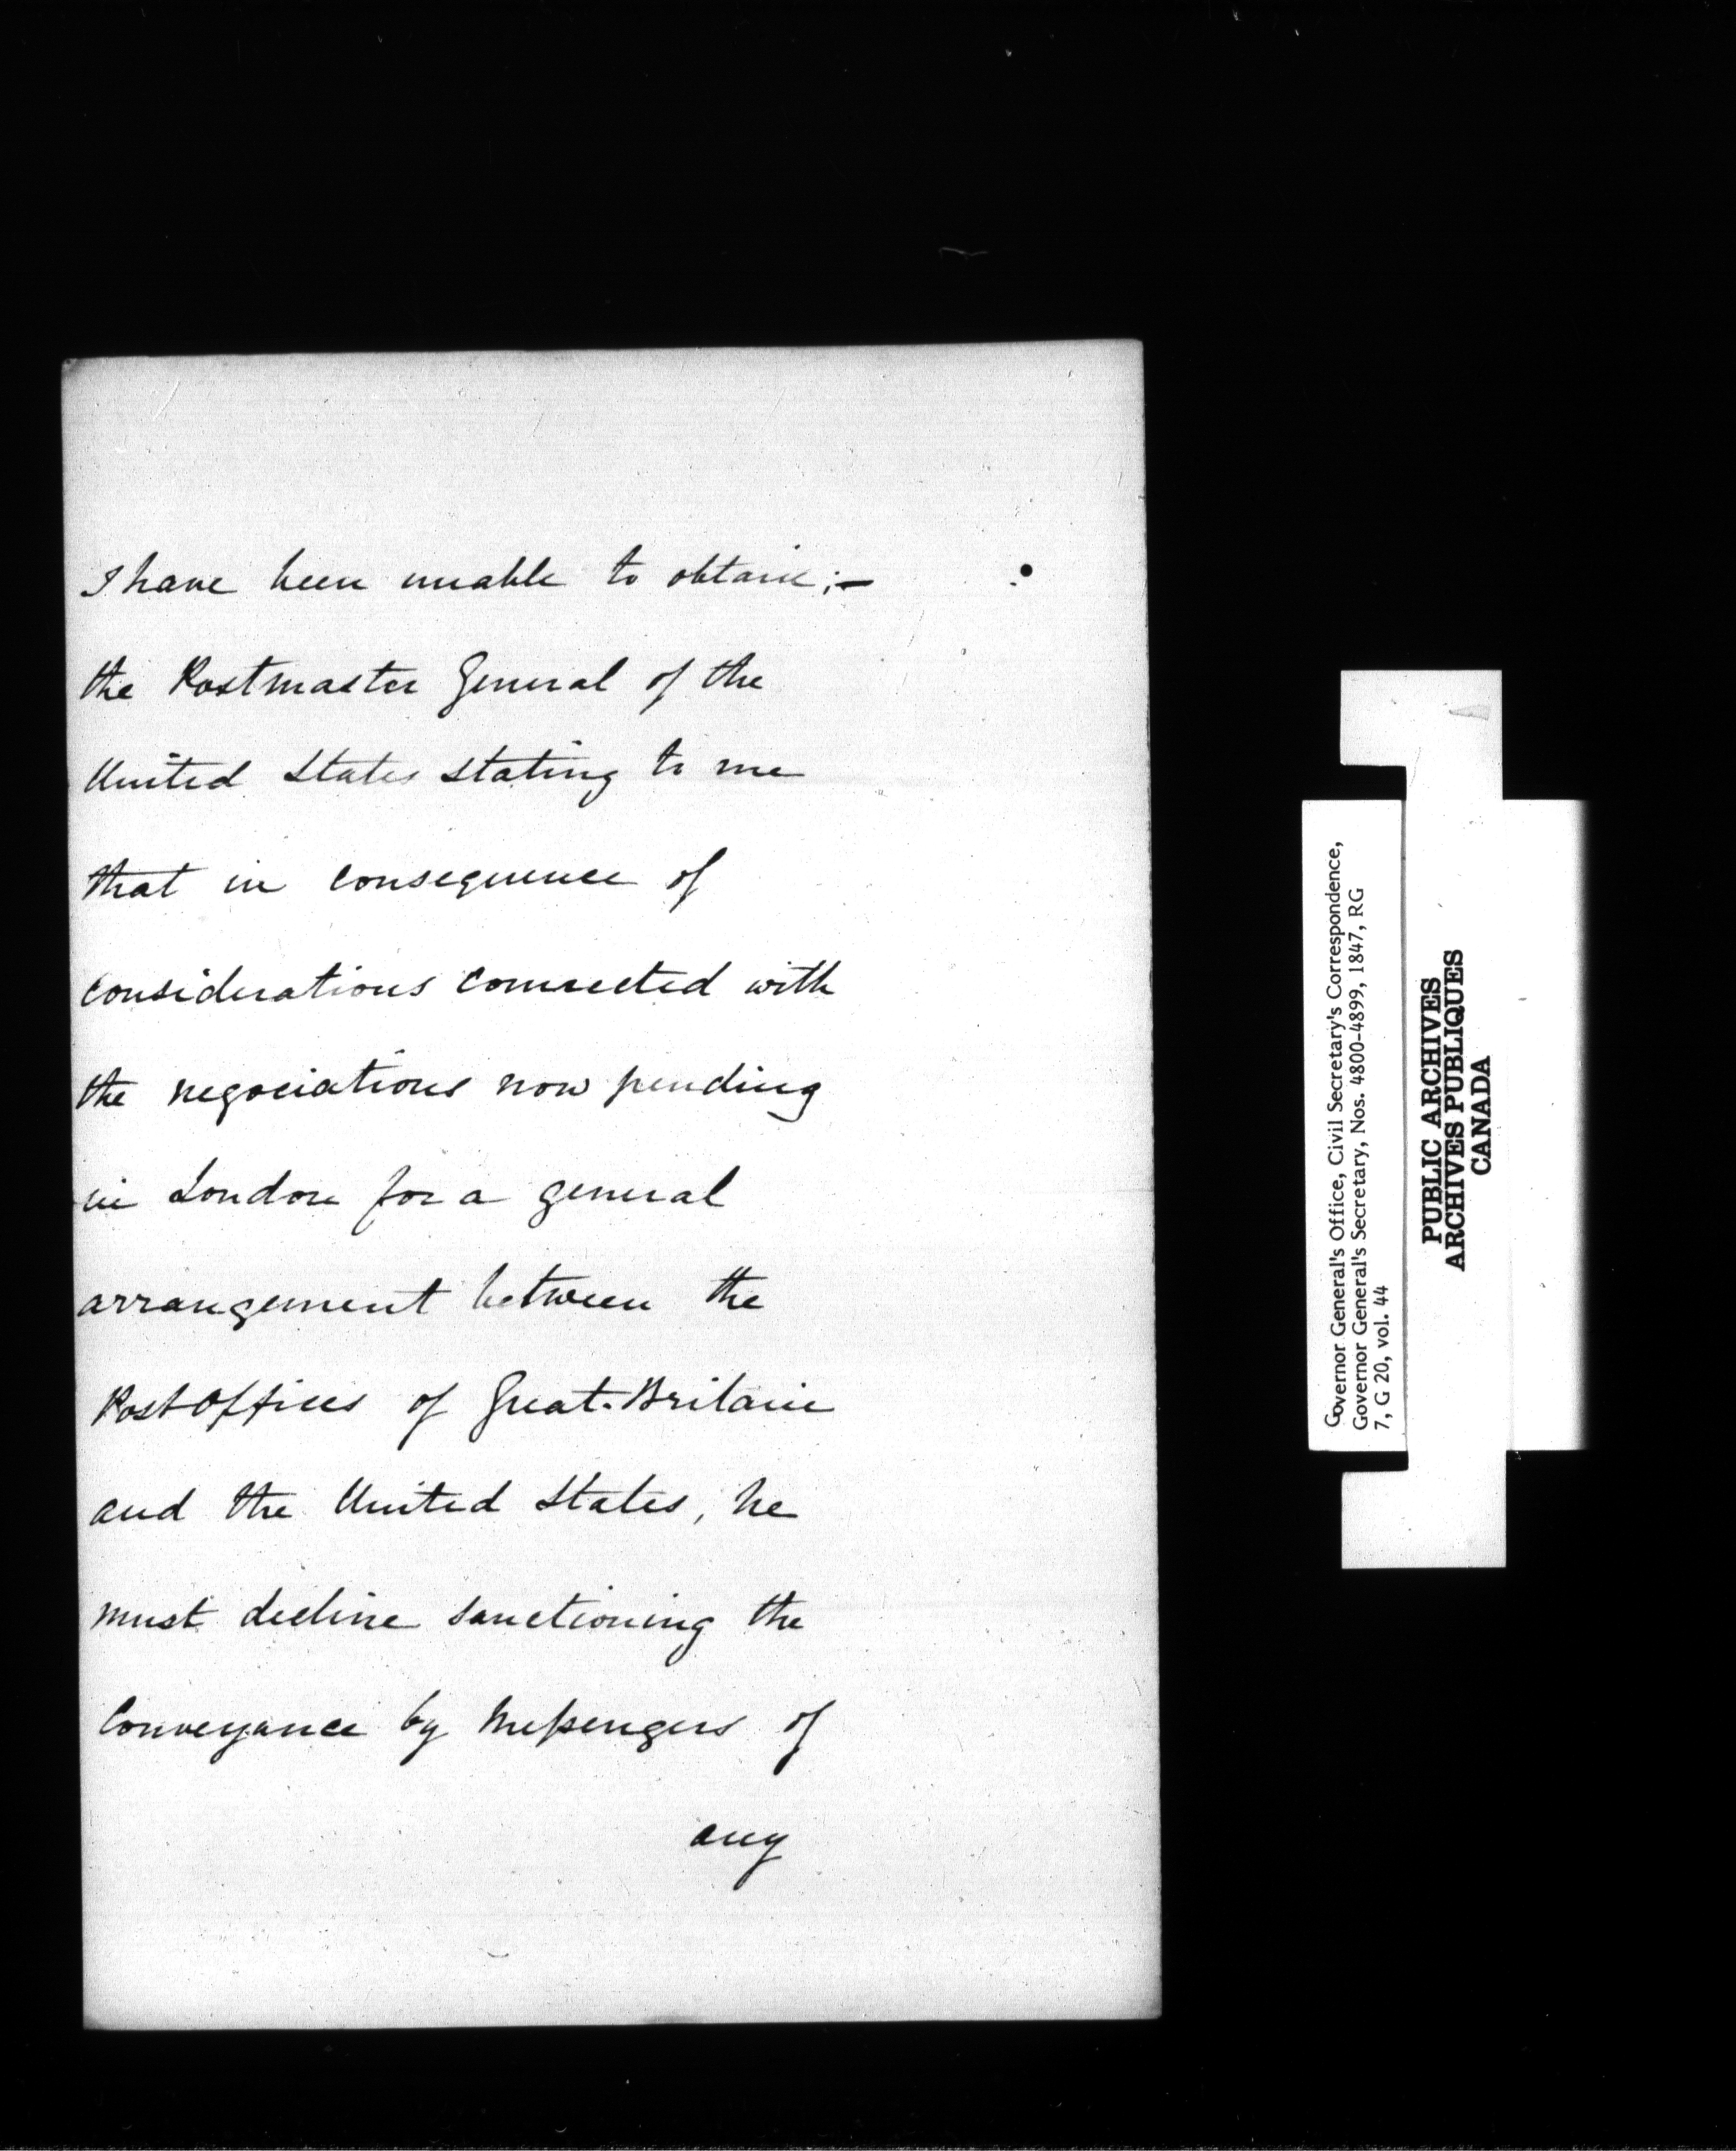 I have been unable to obtain;—
the Postmaster General of the
United States stating to me
that in consequence of
considerations connected with
the negociations now pending
in London for a general
arrangement between the
Post Offices of Great-Britain
and the United States, he
must decline sanctioning the
Conveyance by Messengers of
any
Governor General's Office, Civil Secretary's Correspondence,
Governor General's Secretary, Nos. 4800-4899, 1847, RG
7, G 20, vol. 44
PUBLIC ARCHIVES
ARCHIVES PUBLIQUES
CANADA